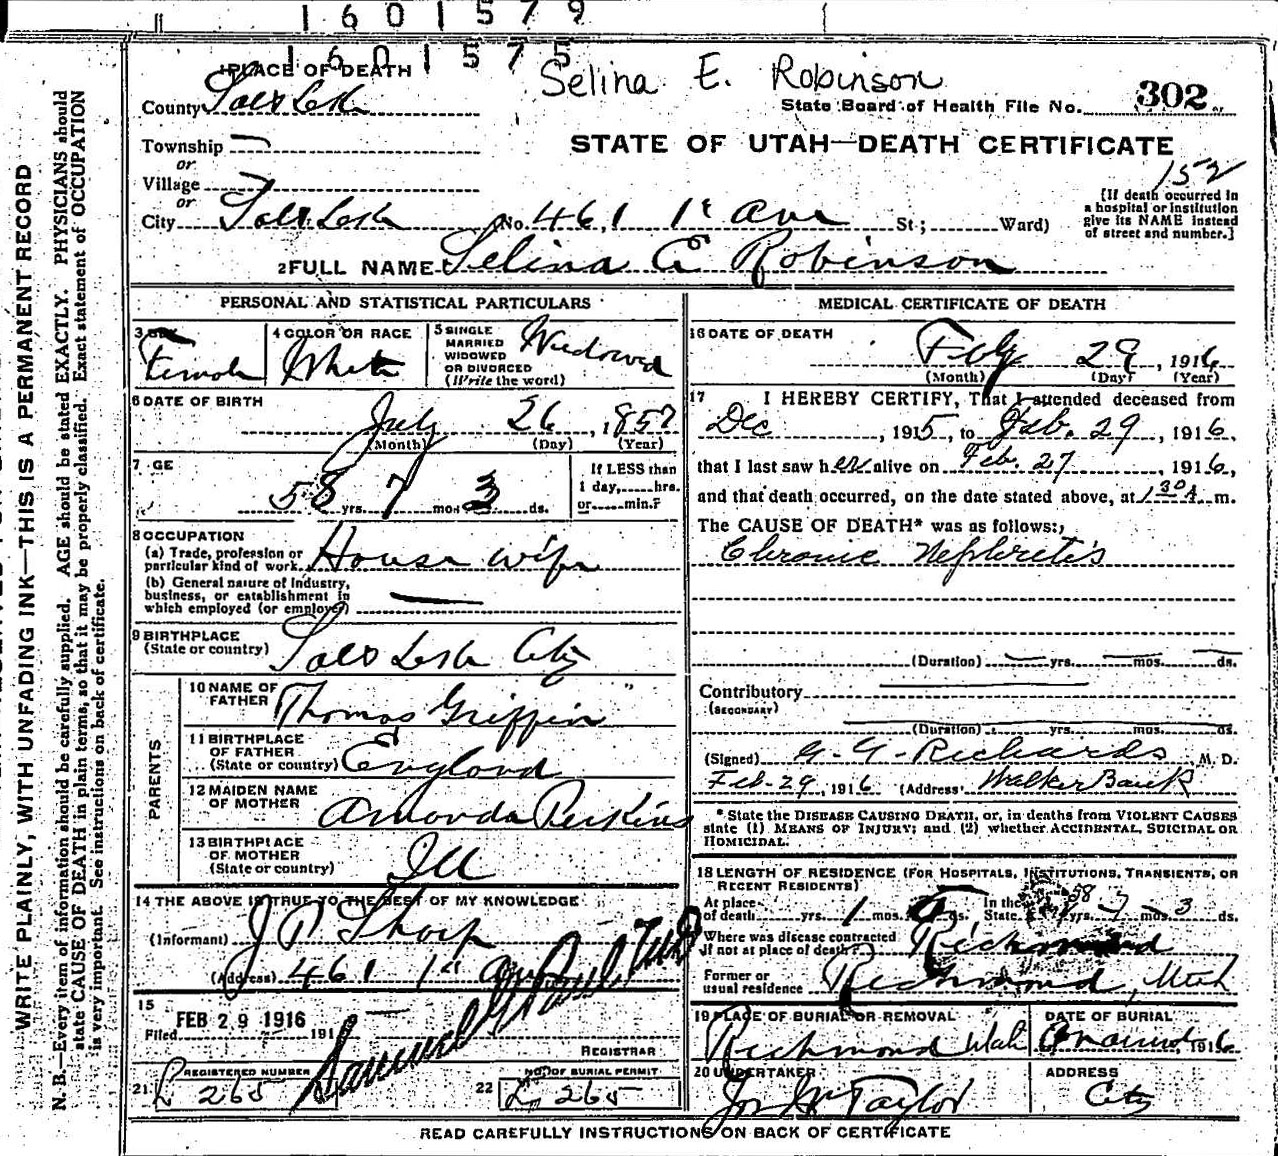 1601579
1601575
Selina E. Robinson
PLACE OF DEATH
County Salt Lake
State Board of Health File No. 302
STATE OF UTAH—DEATH CERTIFICATE
Township
or
Village
or
152
[If death occurred in
a hospital or institution
give its NAME instead
of street and number.]
City Salt Lake No. 461 1st Ave St.; Ward)
2 FULL NAME Selina E Robinson
PERSONAL AND STATISTICAL PARTICULARS
3 SEX Female
4 COLOR OR RACE White
5 SINGLE
MARRIED
WIDOWED
OR DIVORCED
(Write the word)
Widowed
6 DATE OF BIRTH
July 26, 1857
(Month) (Day) (Year)
7 GE
58 yrs. 7 mos. 3 ds.
If LESS than
1 day, hrs.
or min.?
8 OCCUPATION
(a) Trade, profession or
particular kind of work House wife
(b) General nature of Industry,
business, or establishment in
which employed (or employer)
9 BIRTHPLACE
(State or country) Salt Lake City
PARENTS
10 NAME OF
FATHER Thomas Griffin
11 BIRTHPLACE
OF FATHER
(State or country) England
12 MAIDEN NAME
OF MOTHER Amanda Perkins
13 BIRTHPLACE
OF MOTHER
(State or country) Ill
14 THE ABOVE IS TRUE TO THE BEST OF MY KNOWLEDGE
(Informant) J P Sharp
(Address) 461 1st Ave
15
Filed FEB 29 1916 191
Samuel G Paul
REGISTRAR
REGISTERED NUMBER
21 L 265
NO. OF BURIAL PERMIT
22 L 265
MEDICAL CERTIFICATE OF DEATH
16 DATE OF DEATH
Feby 29, 1916
(Month) (Day) (Year)
17 I HEREBY CERTIFY, That I attended deceased from
Dec, 1915, to Feb. 29, 1916,
that I last saw her alive on Feb. 27, 1916,
and that death occurred, on the date stated above, at 1 30 A m.
The CAUSE OF DEATH* was as follows:
Chronic Nephretis
(Duration) yrs. mos. ds.
Contributory
(SECONDARY)
(Duration) yrs. mos. ds.
(Signed) G. G. Richards M. D.
Feb. 29, 1916 (Address) Walker Bank
* State the DISEASE CAUSING DEATH, or, in deaths from VIOLENT CAUSES
state (1) MEANS OF INJURY; and (2) whether ACCIDENTAL, SUICIDAL OR
HOMICIDAL.
18 LENGTH OF RESIDENCE (FOR HOSPITALS, INSTITUTIONS, TRANSIENTS, OR
RECENT RESIDENTS)
At place
of death yrs. 1 mos. ds.
In the
State 58 yrs. 7 mos. 3 ds.
Where was disease contracted
if not at place of death? Richmond
Former or
usual residence Richmond, Utah
19 PLACE OF BURIAL OR REMOVAL
Richmond Utah
DATE OF BURIAL
, 1916
20 UNDERTAKER
Jos Wm Taylor
ADDRESS
City
READ CAREFULLY INSTRUCTIONS ON BACK OF CERTIFICATE
WRITE PLAINLY, WITH UNFADING INK—THIS IS A PERMANENT RECORD
N. B.—Every item of information should be carefully supplied. AGE should be stated EXACTLY. PHYSICIANS should
state CAUSE OF DEATH in plain terms, so that it may be properly classified. Exact statement of OCCUPATION
is very important. See instructions on back of certificate.